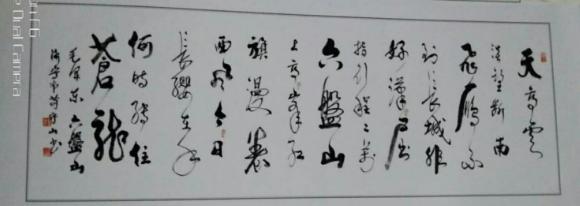 天高雲
淡望断南
飛雁不
到长城非
好漢屈
指行程二萬
六盤山
上高峰红
旗漫卷
西风今日
长纓在手
何時縛住
蒼龍
毛泽东六盤山
Dual Camera